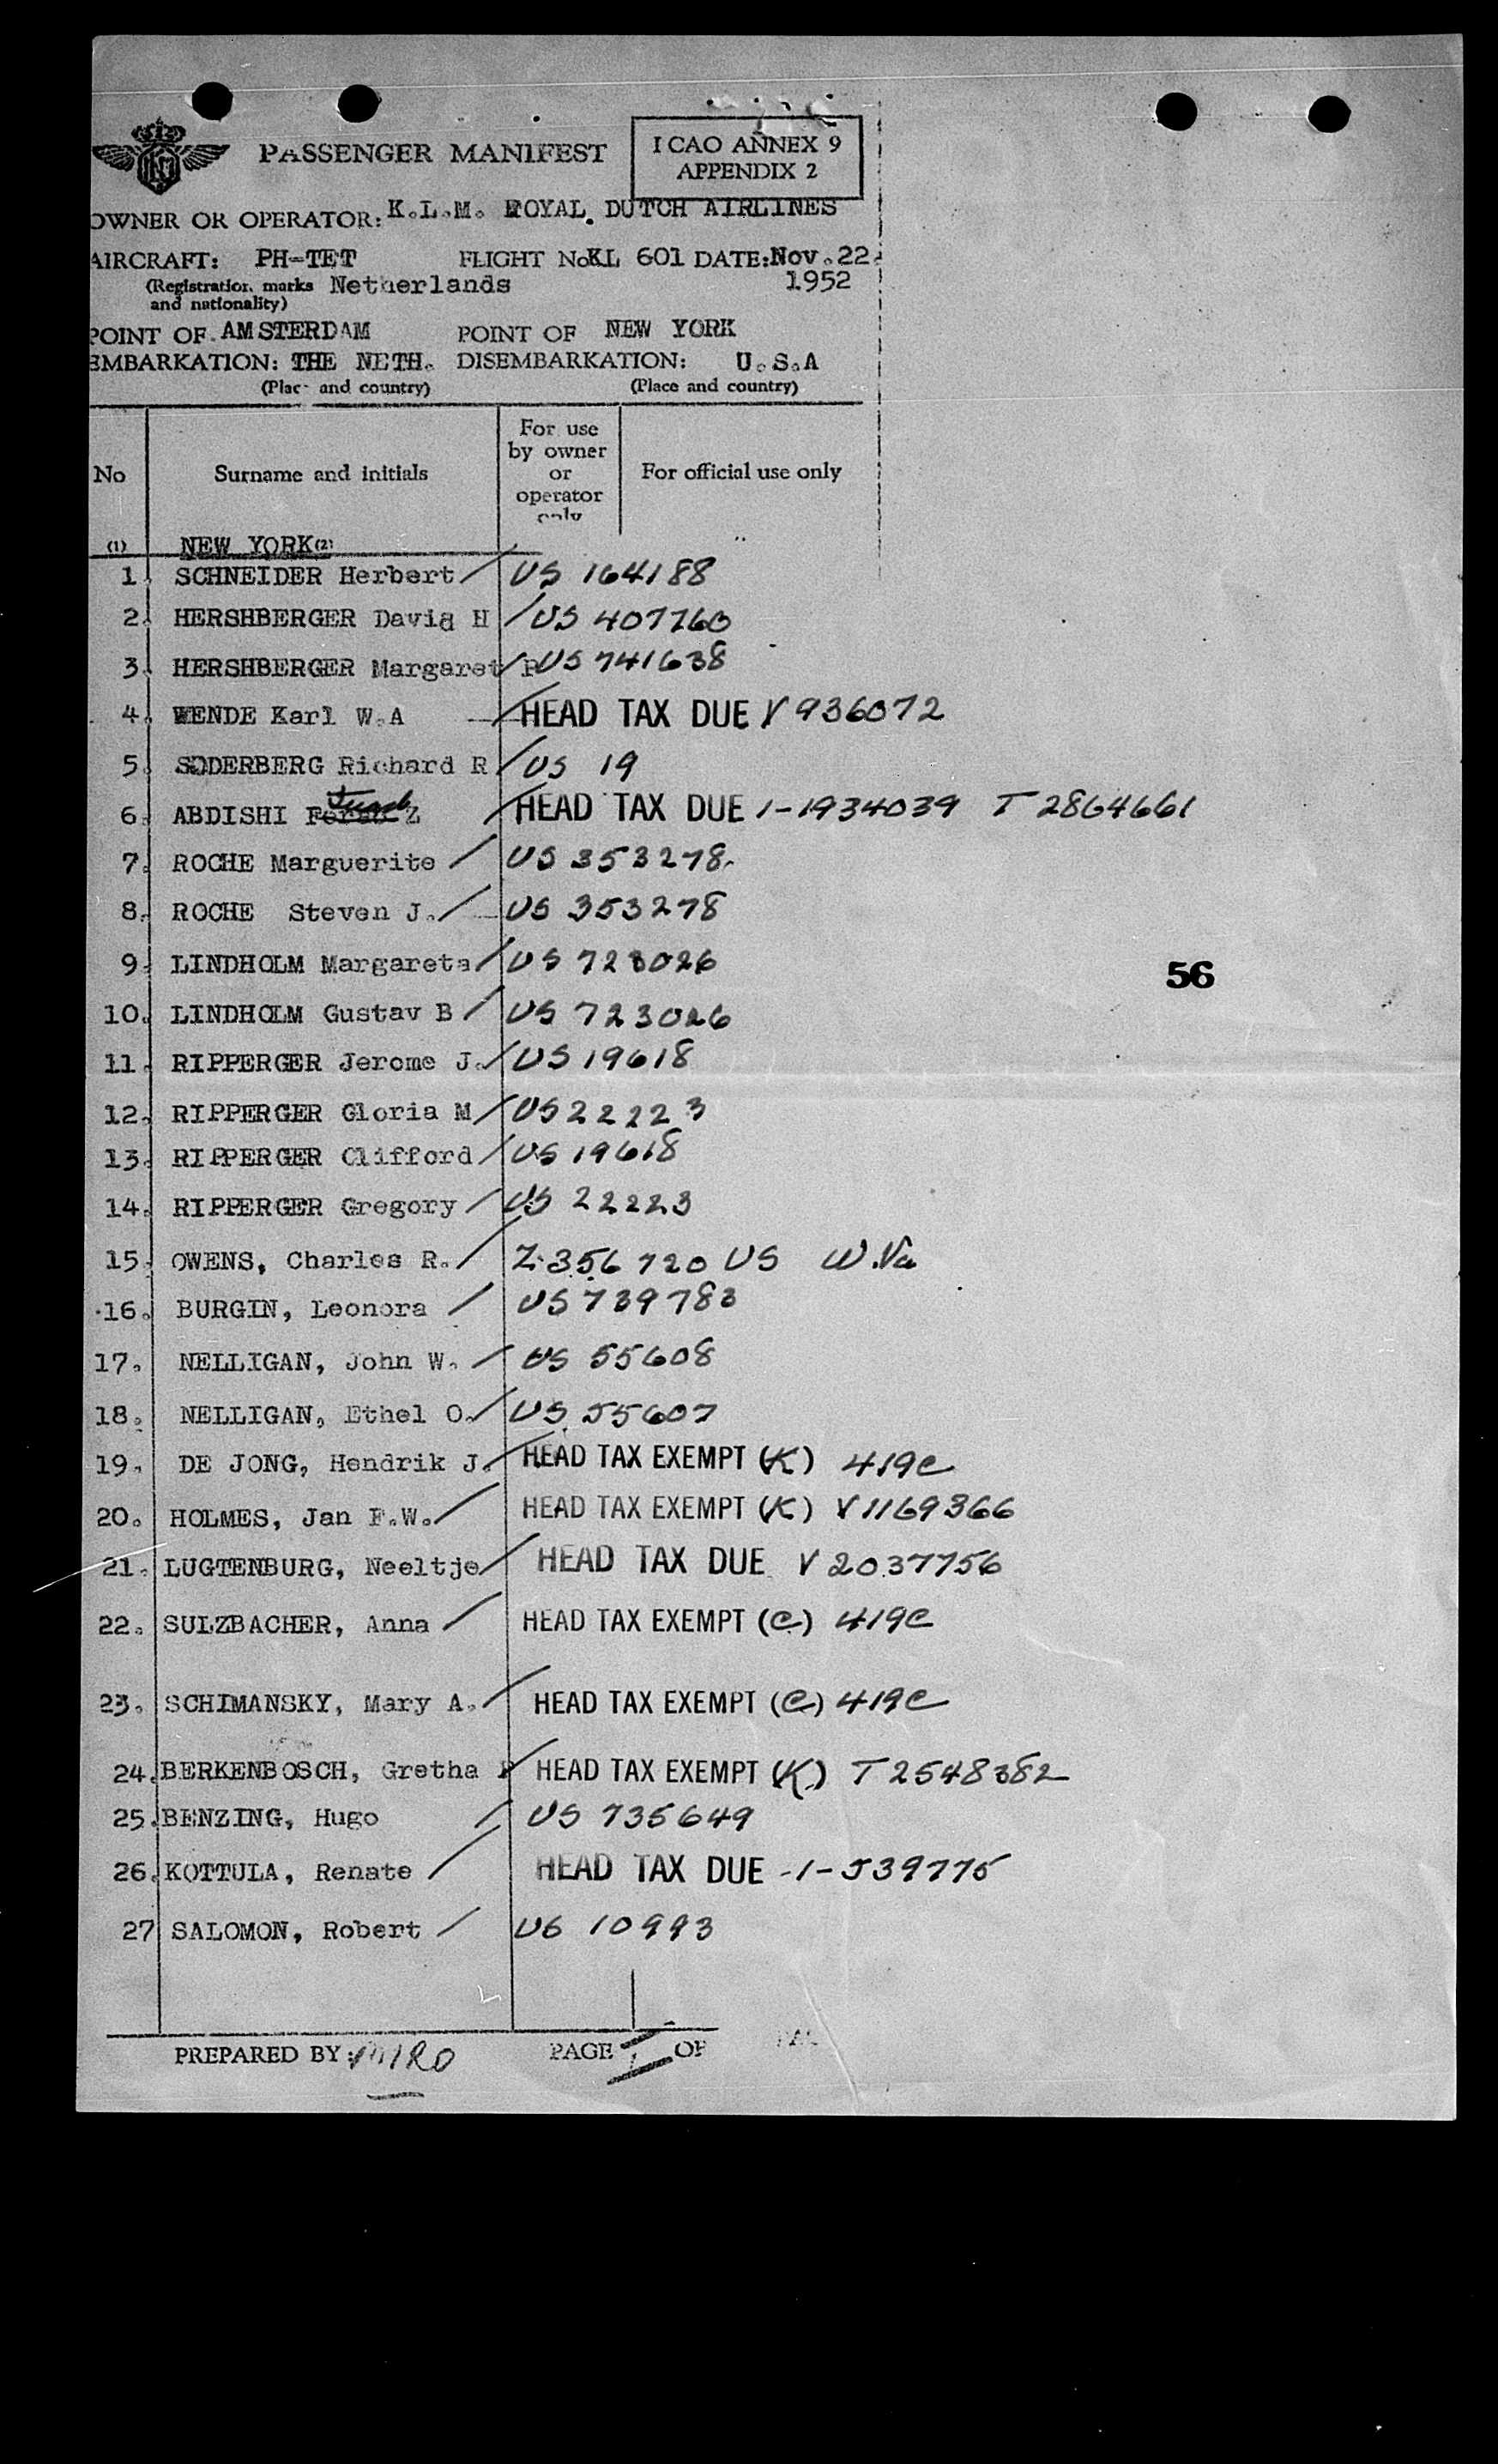 PASSENGER MANIFEST
ICAO ANNEX 9
APPENDIX 2
OWNER OR OPERATOR: K.L.M. ROYAL DUTCH AIRLINES
AIRCRAFT: PH-TET FLIGHT No KL 601 DATE: Nov. 22.
(Registration marks and nationality) Netherlands 1952
POINT OF AMSTERDAM POINT OF NEW YORK
EMBARKATION: THE NETH. DISEMBARKATION: U.S.A
(Place and country) (Place and country)
No Surname and initials For use by owner or operator only For official use only
(1) NEW YORK (2)
1. SCHNEIDER Herbert / US 164188
2. HERSHBERGER David H / US 407760
3. HERSHBERGER Margaret P / US 741638
4. WENDE Karl W.A / HEAD TAX DUE V 936072
5. SODERBERG Richard R / US 19
6. ABDISHI Z / HEAD TAX DUE 1-1934039 T 2864661
7. ROCHE Marguerite / US 353278
8. ROCHE Steven J. / US 353278
9. LINDHOLM Margareta / US 723026
10. LINDHOLM Gustav B / US 723026
11. RIPPERGER Jerome J. / US 19618
12. RIPPERGER Gloria M / US 22223
13. RIPPERGER Clifford / US 19618
14. RIPPERGER Gregory / US 22223
15. OWENS, Charles R. / Z-356720 US W.Va
16. BURGIN, Leonora / US 739783
17. NELLIGAN, John W. / US 55608
18. NELLIGAN, Ethel O. / US 55607
19. DE JONG, Hendrik J. / HEAD TAX EXEMPT (K) 419c
20. HOLMES, Jan F.W. / HEAD TAX EXEMPT (K) V 1169366
21. LUGTENBURG, Neeltje / HEAD TAX DUE V 2037756
22. SULZBACHER, Anna / HEAD TAX EXEMPT (C) 419C
23. SCHIMANSKY, Mary A. / HEAD TAX EXEMPT (C) 419C
24. BERKENBOSCH, Gretha / HEAD TAX EXEMPT (K) T 2548382
25. BENZING, Hugo / US 735649
26. KOTTULA, Renate / HEAD TAX DUE -1-539775
27 SALOMON, Robert / US 10993
56
PREPARED BY: PAGE 1 OF